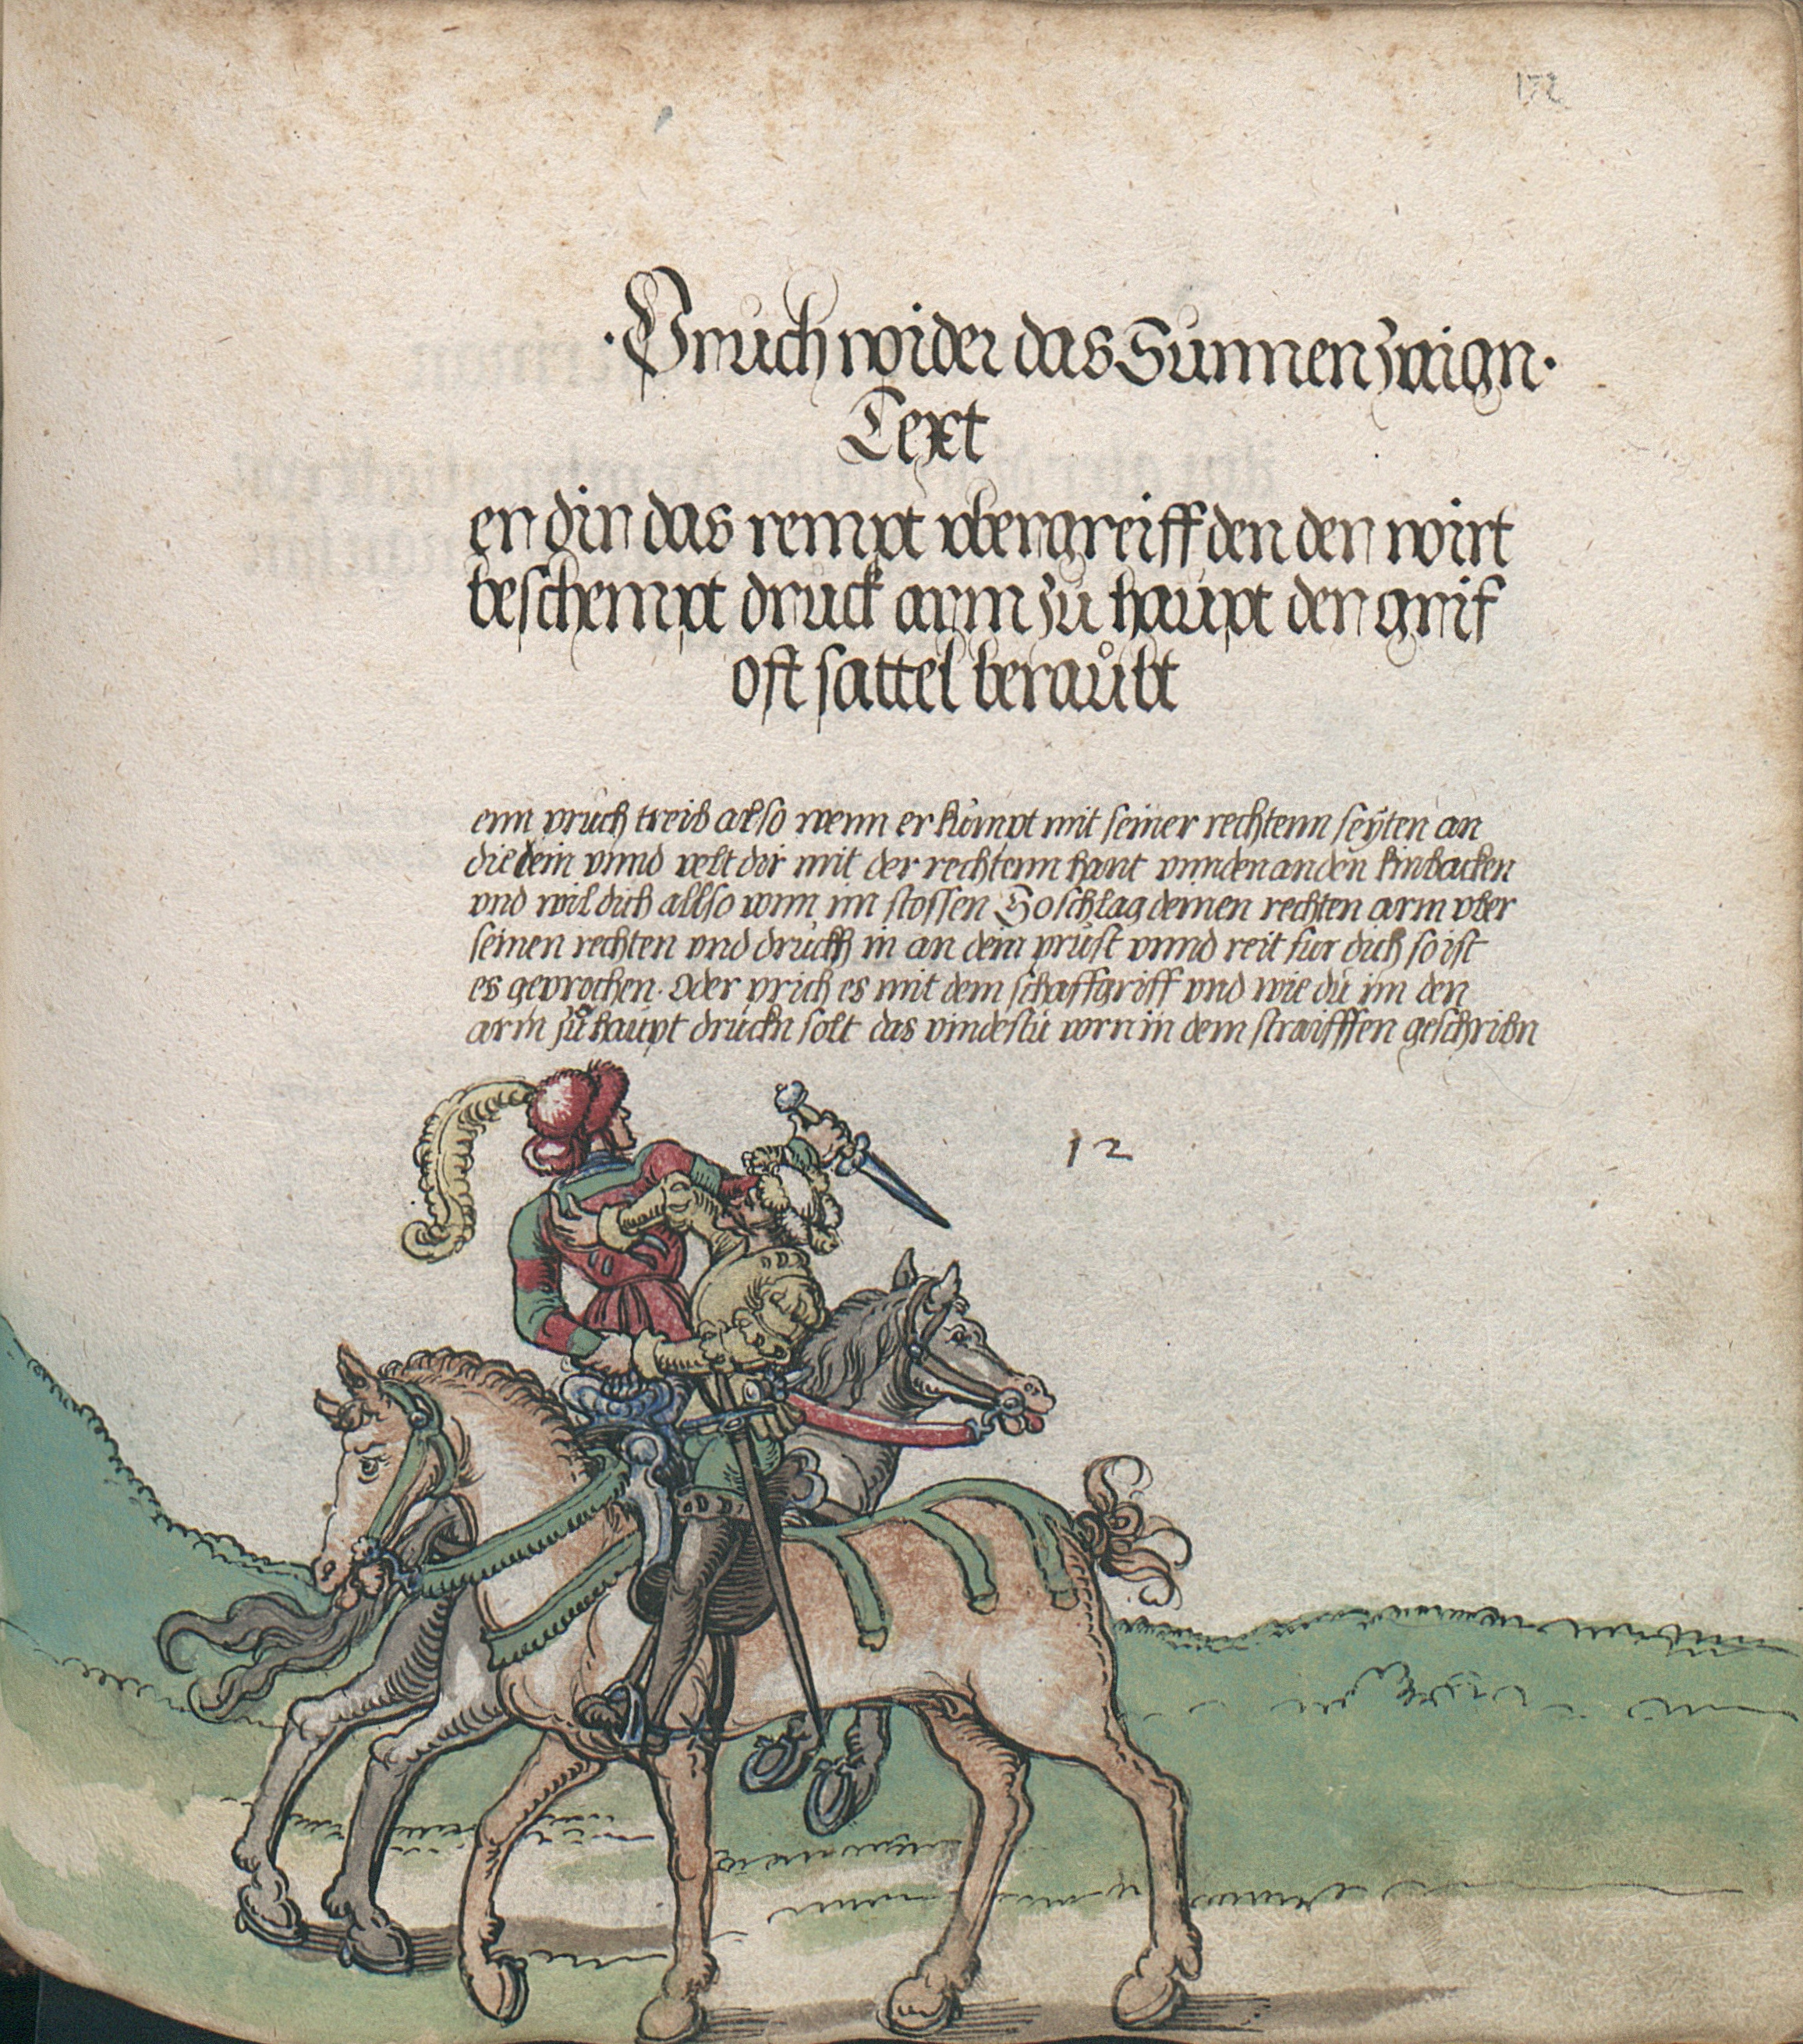 172
·Pruch wider das Sunnen zaign·
Text
en din das rempt vbergreiff den den wirt
beschempt druck arm zu haupt den grif
oft sattel beraůbt
enn pruch treib also wenn er kumpt mit seiner rechtenn seÿten an
die dein vnnd velt dir mit der rechtenn hant vnnden an den kinbacken
vnd wil dich allso vonn im stossen So schlag deinen rechten arm vber
seinen rechten vnd druckh in an dein prust vnnd reit fur dich so ist
es geprochen. Oder prich es mit dem schaffgriff vnd wie du im den
arm zů haupt druckn solt das vindestu vorn in dem straifffen geschribn
12